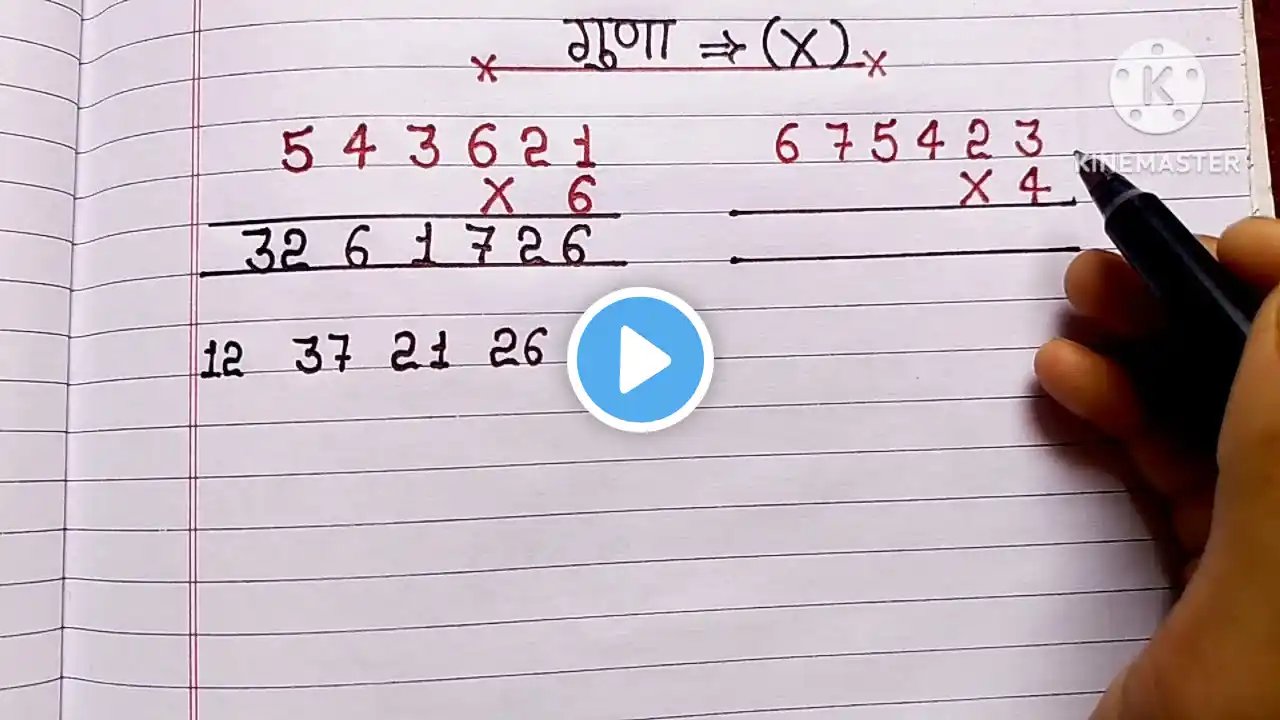 गुणा ⇒ (X)
5 4 3 6 2 1
X 6
32 6 1 7 2 6
12 37 21 26
6 7 5 4 2 3
X 4
K
KINEMASTER